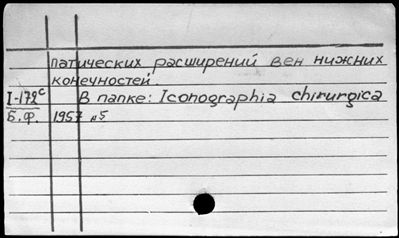 патических расширений вен нижних
конечностей.
I-172с В папке: Iconographia chirurgica
Б.Ф. 1957 №5